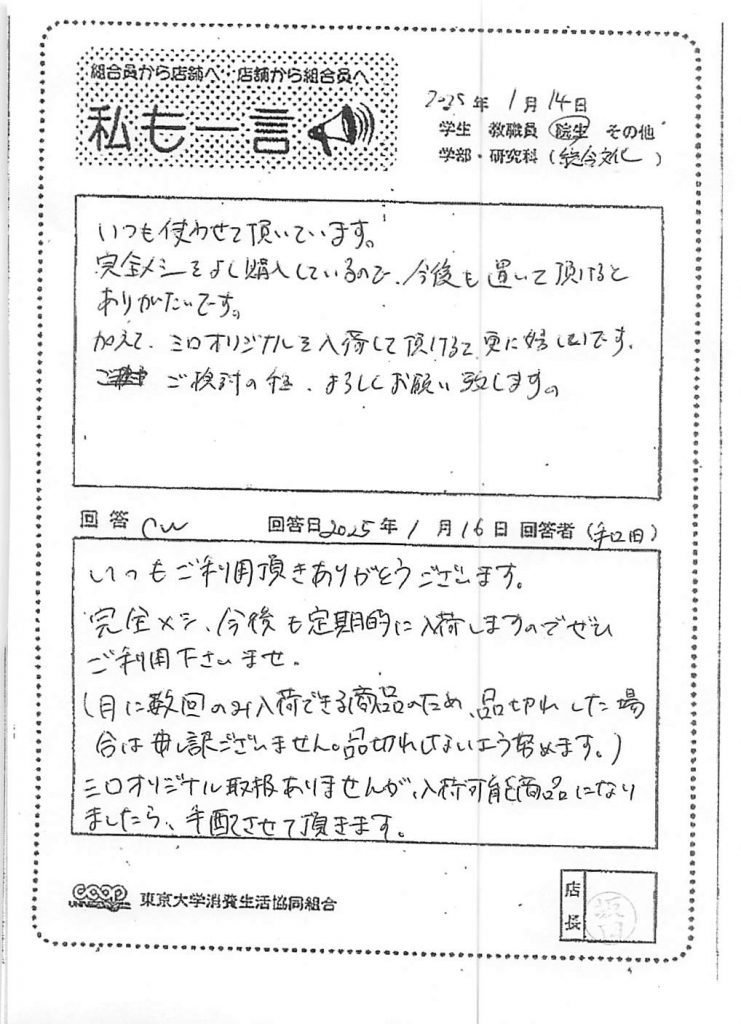 組合員から店舗へ 店舗から組合員へ
私も一言
2025年 1月 14日
学生 教職員 院生 その他
学部・研究科 (総合文化)
いつも使わせて頂いています。
完全メシをよく購入しているので、今後も置いて頂けると
ありがたいです。
加えて、ミロオリジナルを入荷して頂けると更に嬉しいです。
ご検討の程、よろしくお願い致します。
回答 回答日2025年 1月 16日 回答者
いつもご利用頂きありがとうございます。
完全メシ、今後も定期的に入荷しますのでぜひ
ご利用下さいませ。
(月に数回のみ入荷できる商品のため、品切れした場
合は申し訳ございません。品切れしないよう努めます。)
ミロオリジナル取扱ありませんが、入荷可能商品になり
ましたら、手配させて頂きます。
coop 東京大学消費生活協同組合
店長